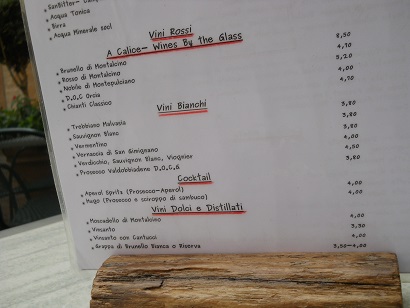 SanBitter-
Acqua Tonica
Birra
Acqua Minerale 50cl
Vini Rossi
A Calice- Wines By the Glass
Brunello di Montalcino 8,50
Rosso di Montalcino 4,70
Nobile di Montepulciano 5,20
D.O.C Orcia 4,00
Chianti Classico 4,70
Vini Bianchi
Trebbiano Malvasia 3,80
Sauvignon Blanc 3,80
Vermentino 4,00
Vernaccia di San Gimignano 4,00
Verdicchio, Sauvignon Blanc, Viognier 4,50
Prosecco Valdobbiadene D.O.C.G 3,80
Cocktail
Aperol Spritz (Prosecco-Aperol) 4,00
Hugo (Prosecco e sciroppo di sambuco) 4,00
Vini Dolci e Distillati
Moscadello di Montalcino 4,00
Vinsanto 3,50
Vinsanto con Cantucci 4,00
Grappa di Brunello Bianca o Riserva 3,50-4,00